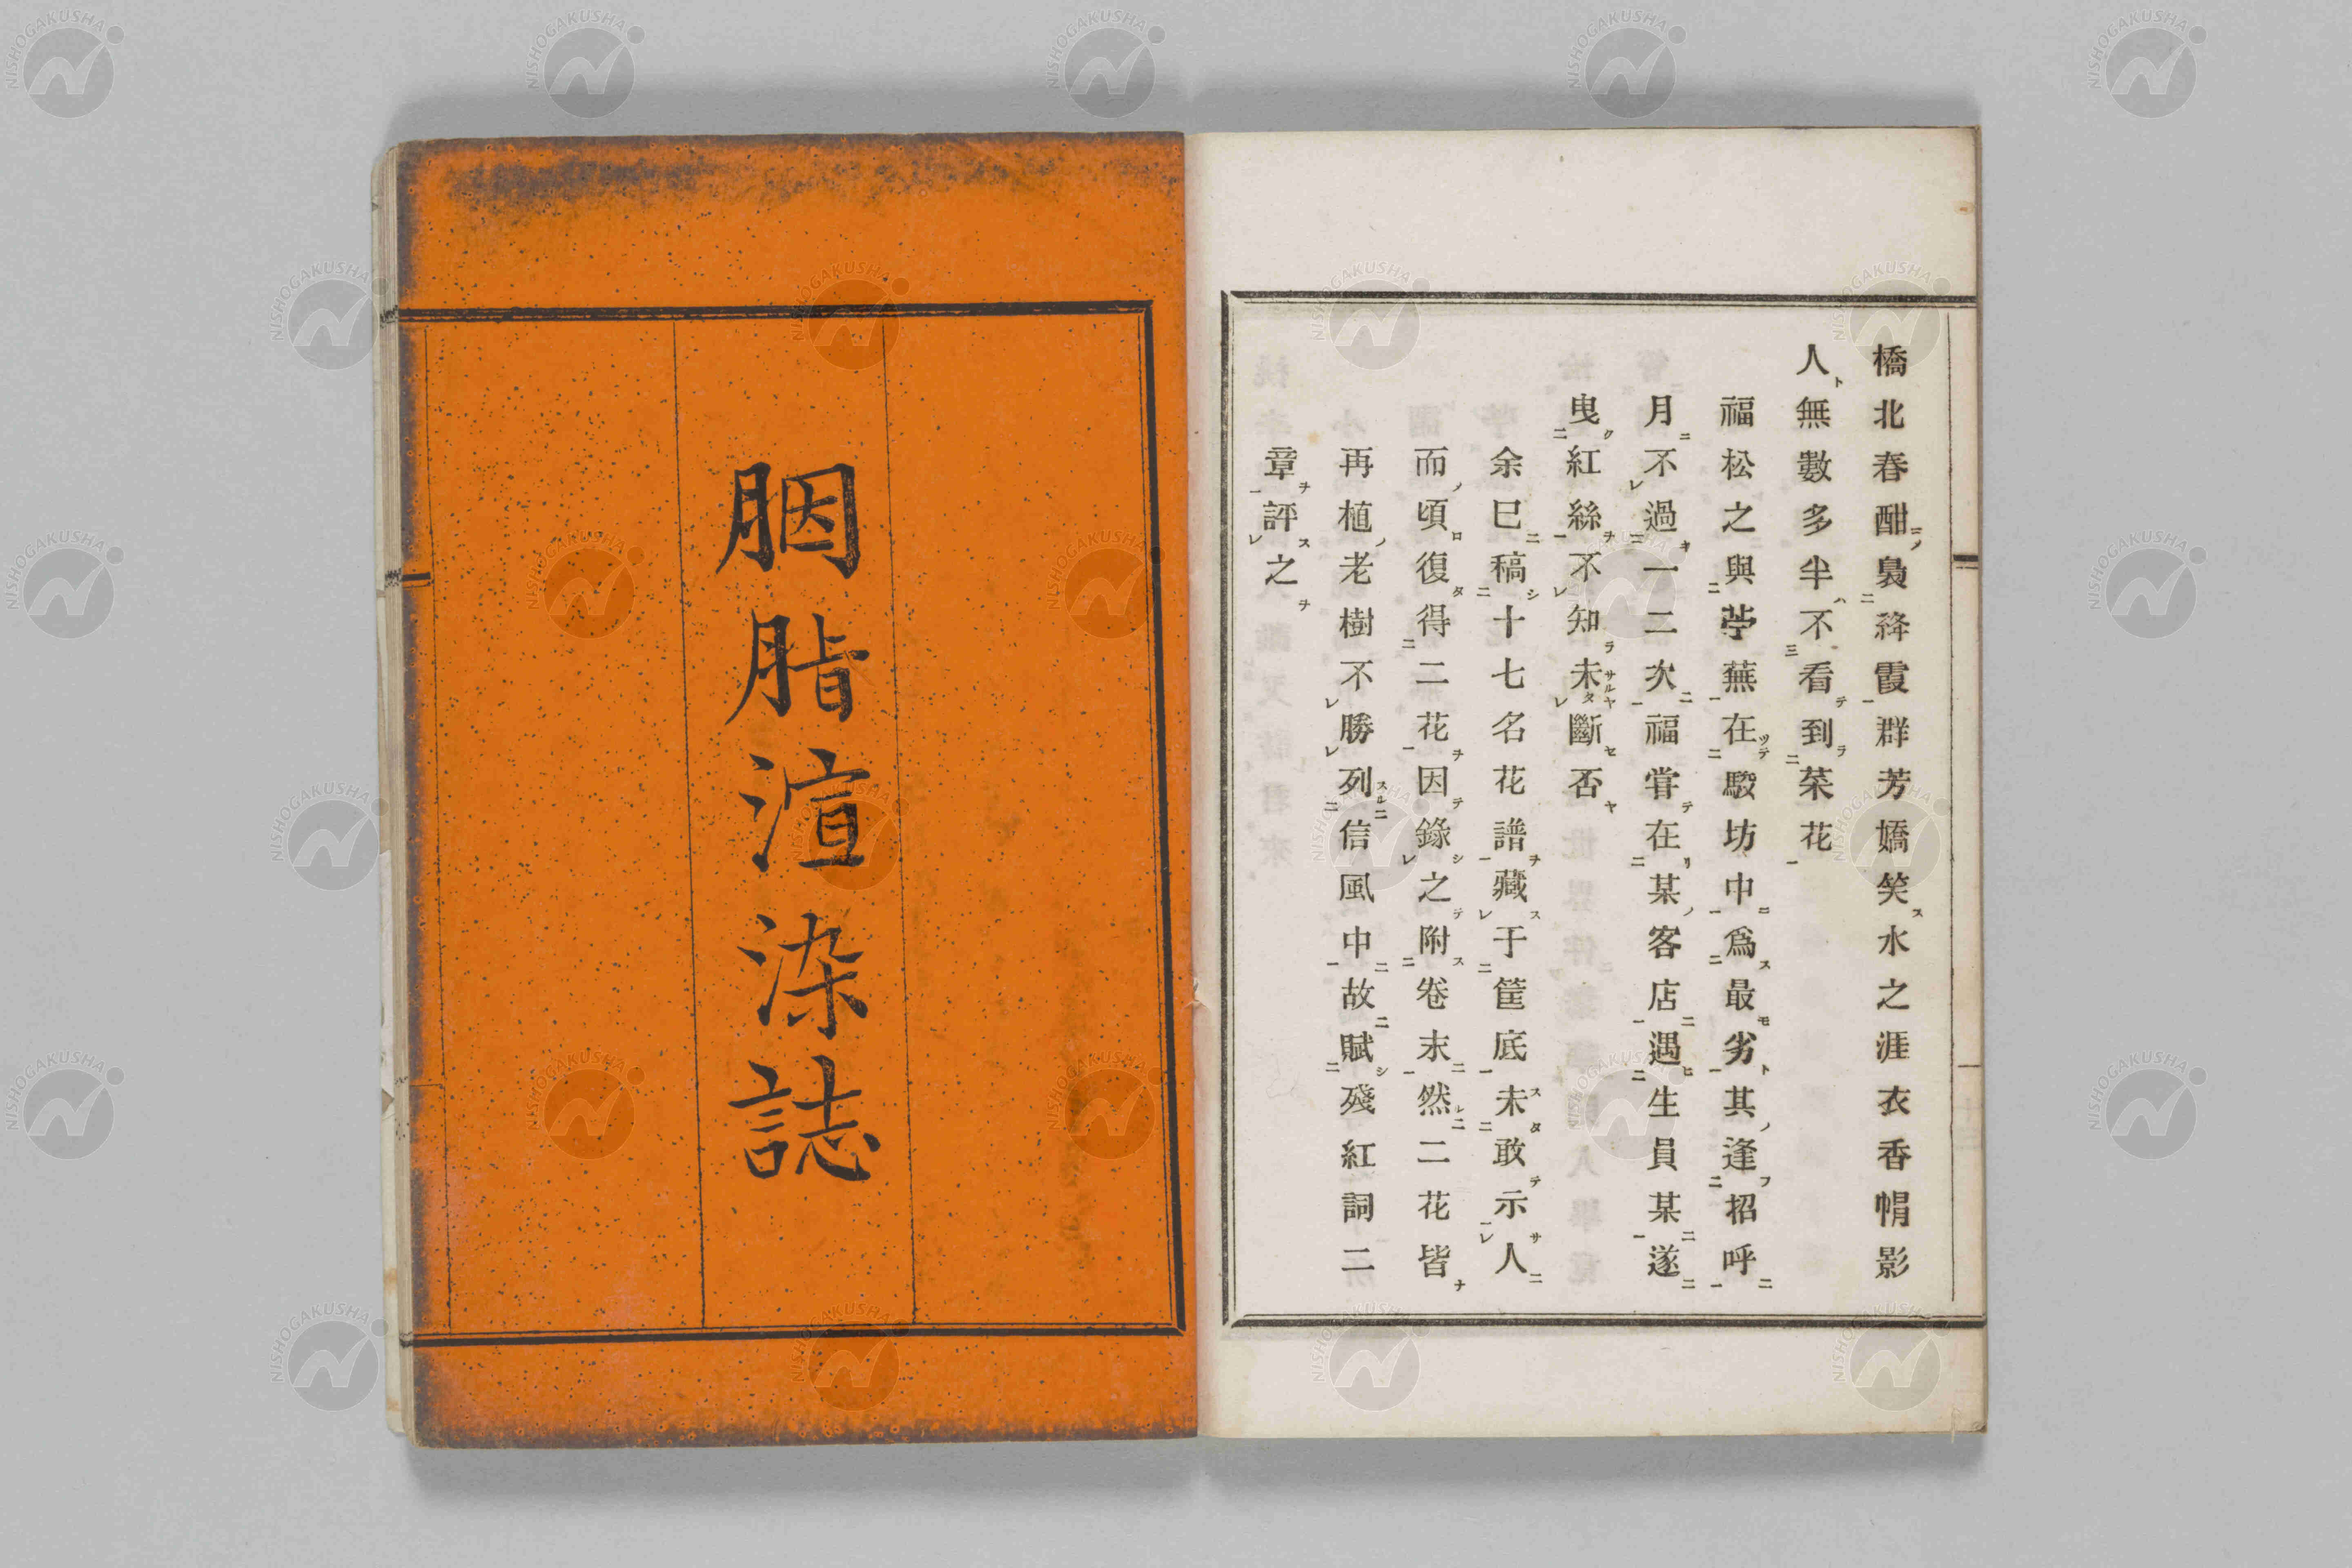 橋北春酣裊絳霞群芳嬌笑水之涯衣香帽影
人無數多半不看到菜花
福松之與苧蕪在駿坊中爲最劣其逢招呼
月不過一二次福嘗在某客店遇生員某遂
曳紅絲不知未斷否
余已稿十七名花譜藏于筐底未敢示人
而頃復得二花因錄之附卷末然二花皆
再植老樹不勝列信風中故賦殘紅詞二
章評之
胭脂渲染誌
NISHOGAKUSHA